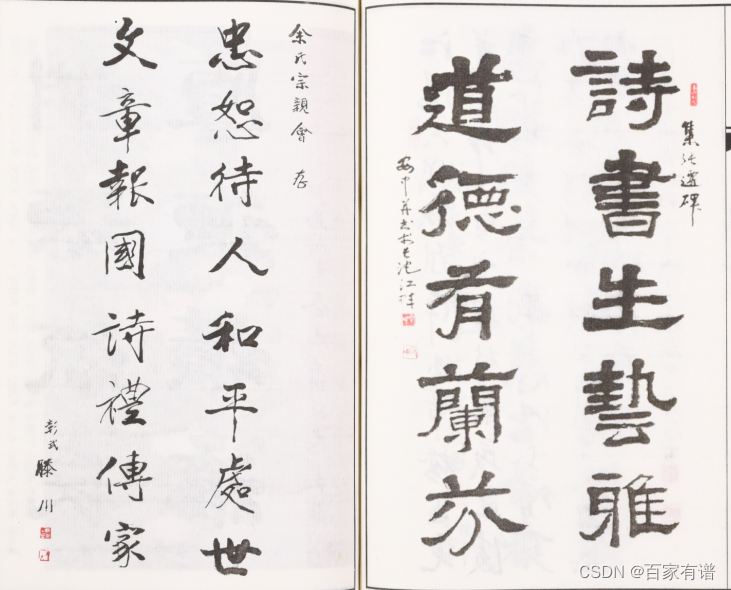 集張遷碑
詩書生藝雅
道德有蘭芬
余氏宗親會 存
忠恕待人和平處世
文章報國詩禮傳家
彭城
滕川
CSDN @百家有谱